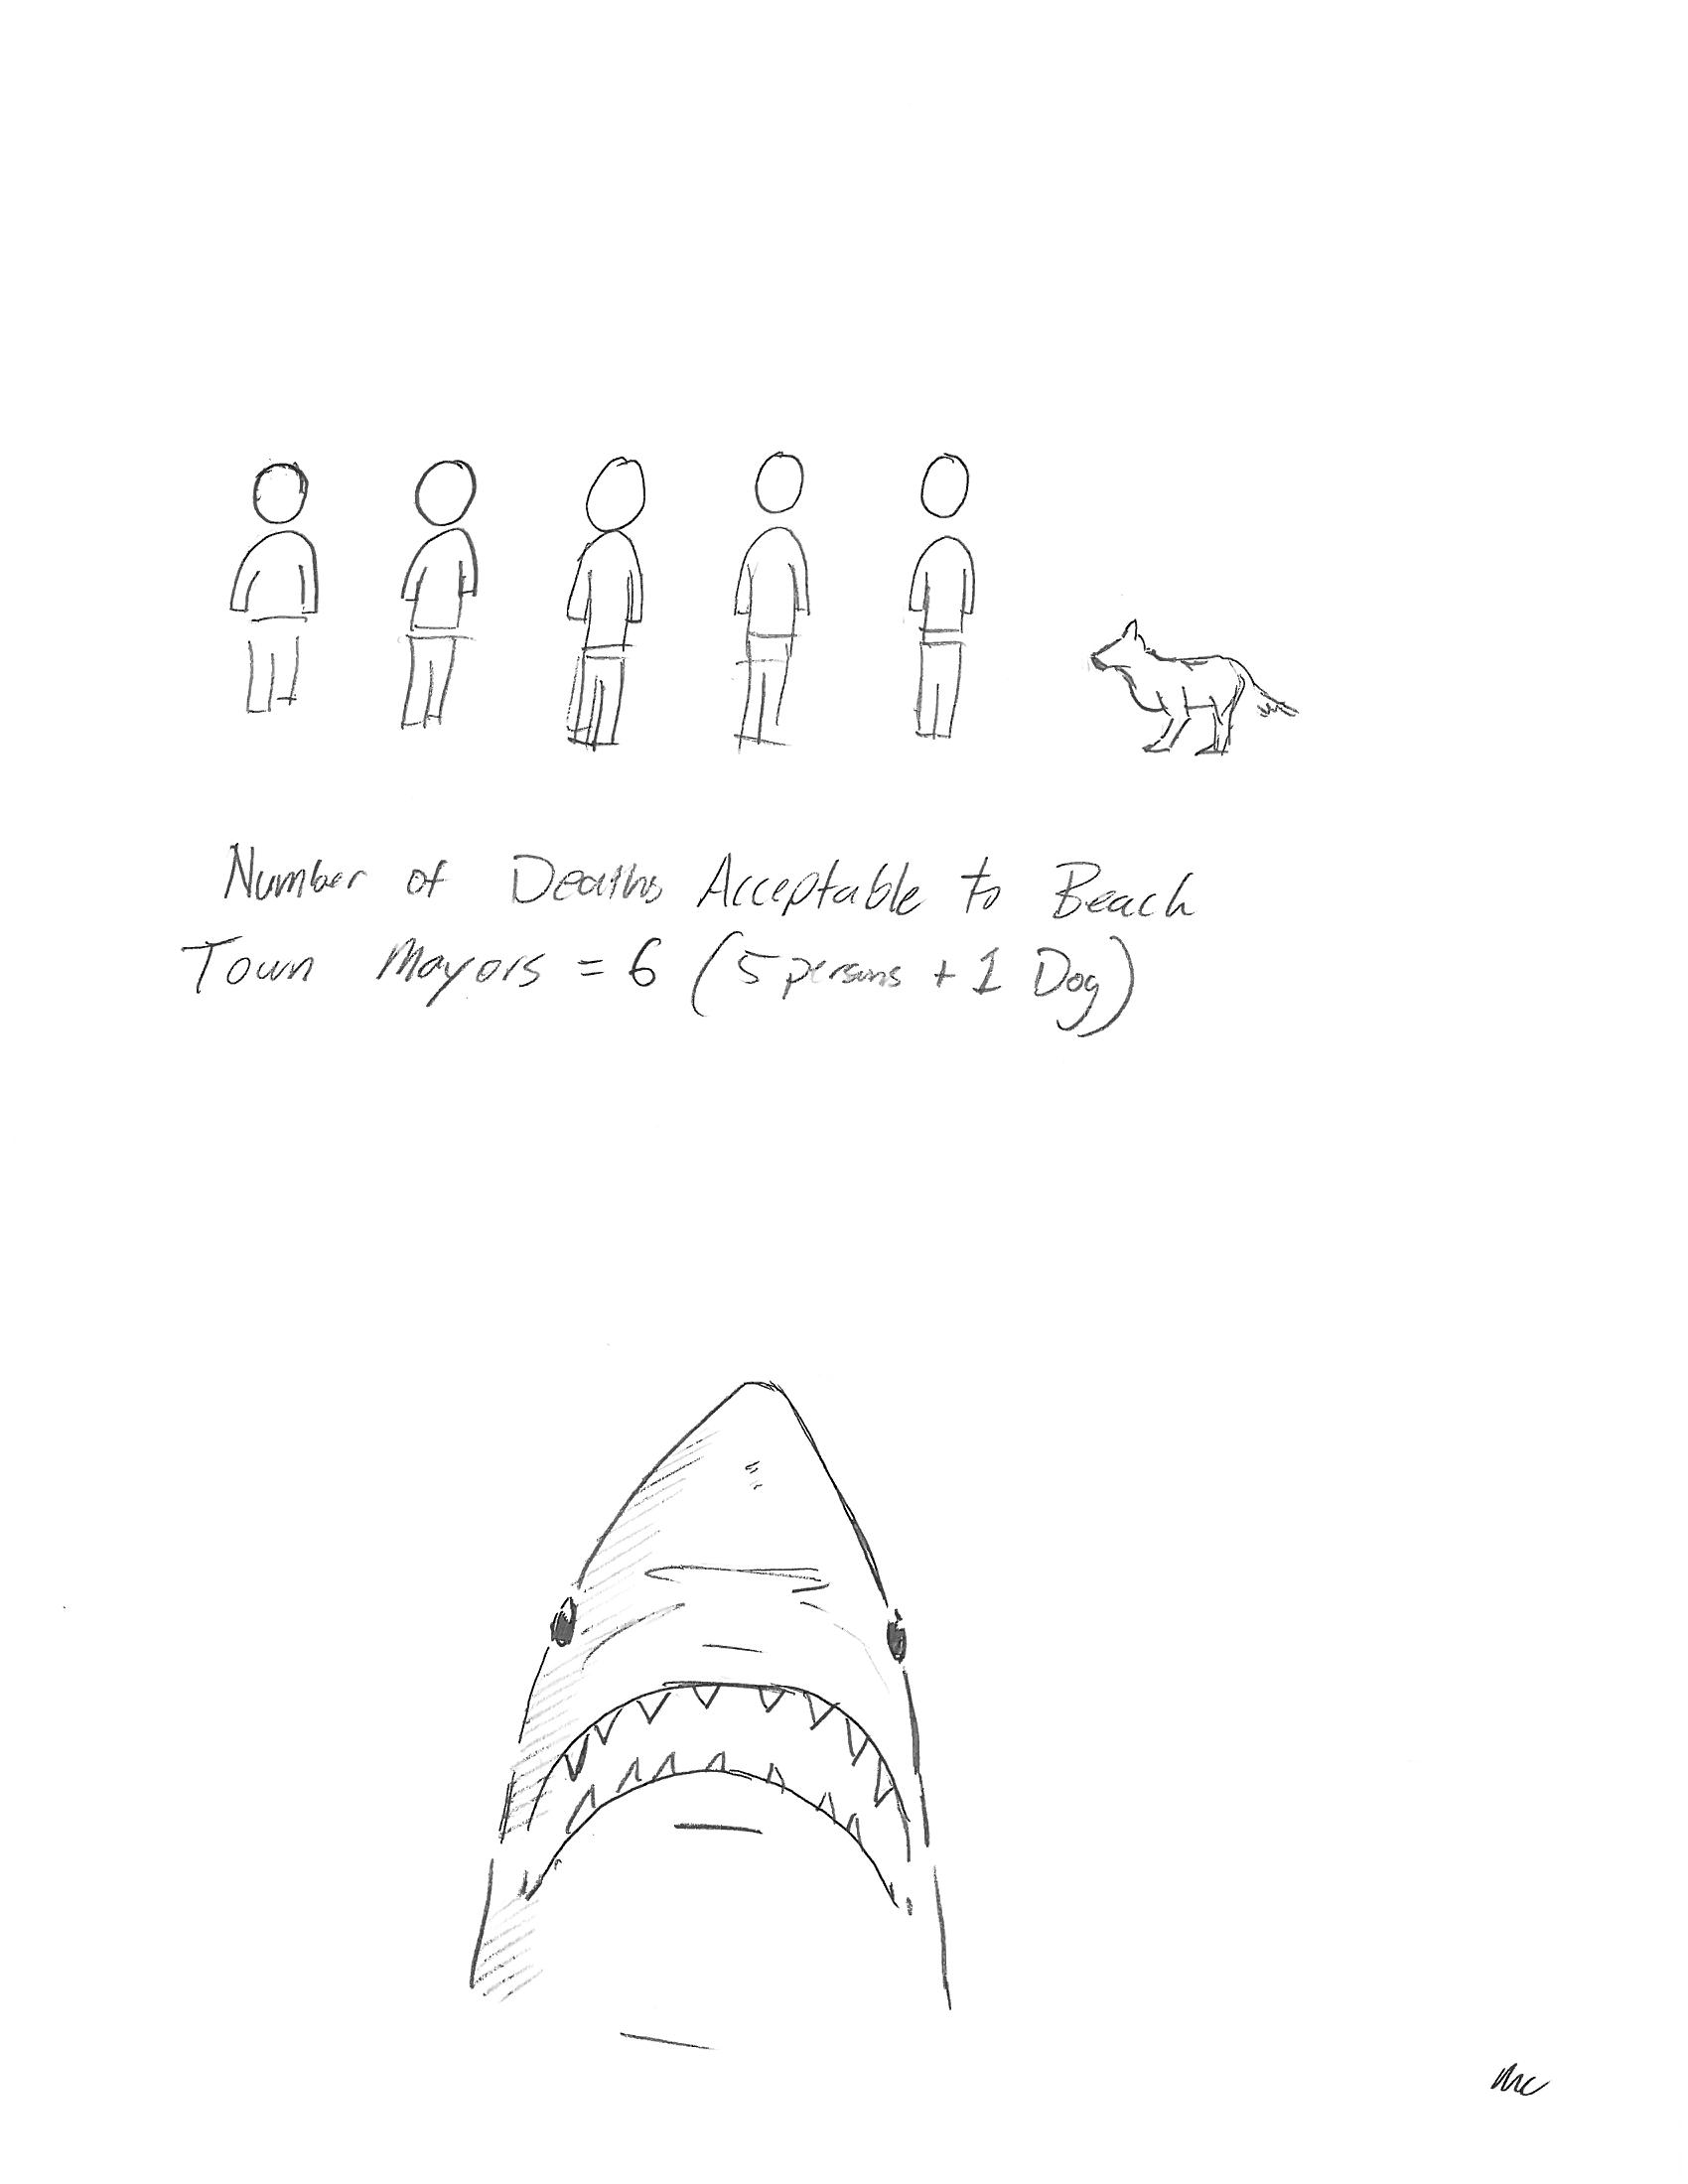 Number of Deaths Acceptable to Beach
Town Mayors = 6 (5 persons + 1 Dog)